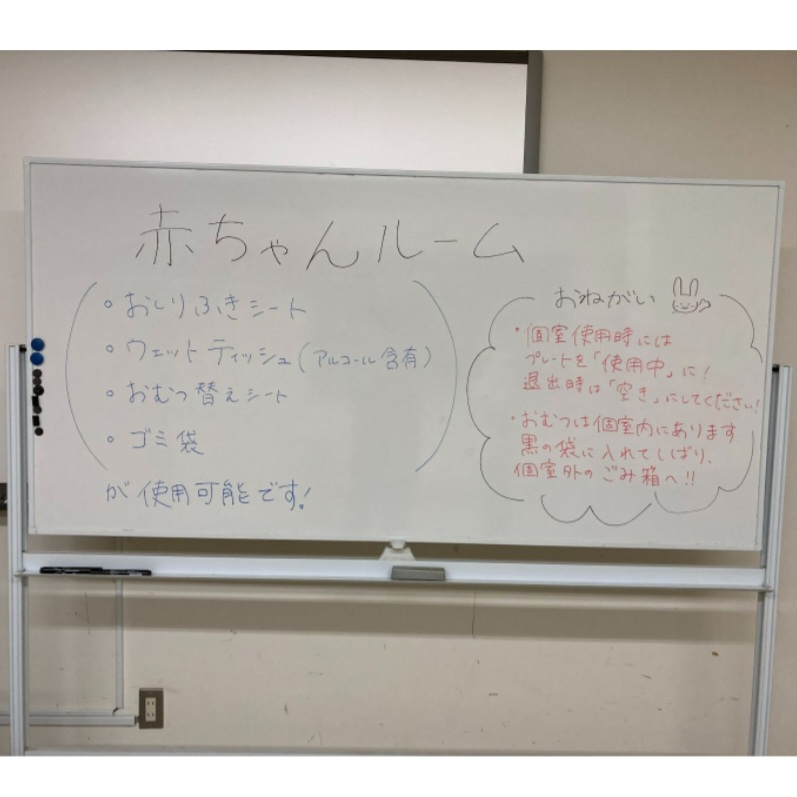 赤ちゃんルーム
• おしりふきシート
• ウェットティッシュ(アルコール含有)
• おむつ替えシート
• ゴミ袋
が使用可能です!
おねがい
・個室使用時には
プレートを「使用中」に!
退出時は「空き」にしてください!
・おむつは個室内にあります
黒の袋に入れてしばり、
個室外のごみ箱へ!!